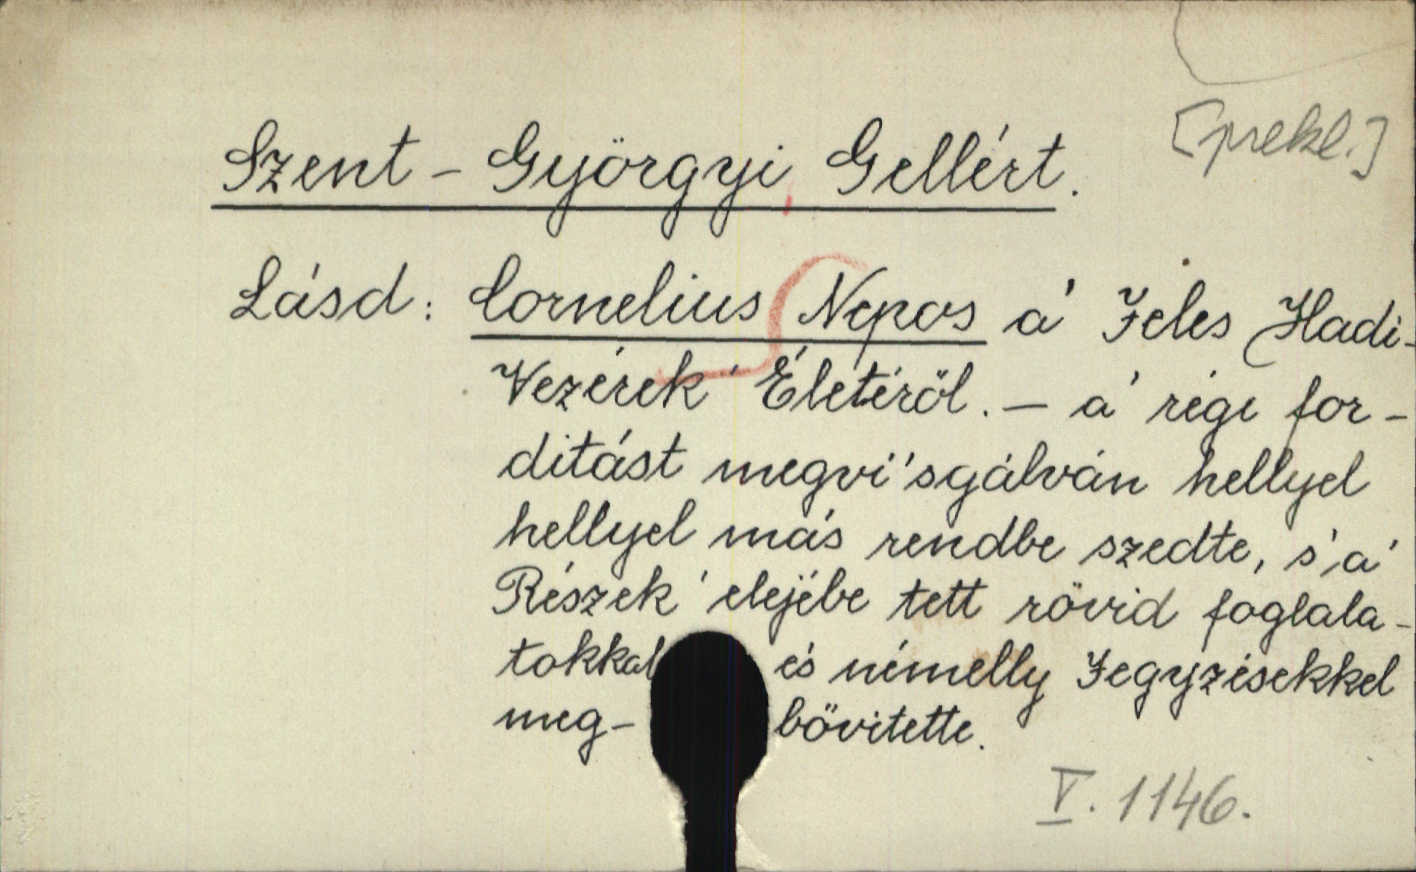 [prekl.]
Szent-Györgyi, Gellért.
Lásd: Cornelius Nepos a' Jeles Hadi-
Vezérek' Életéről. — a' régi for-
ditást megvi'sgálván hellyel
hellyel más rendbe szedte, s' a'
Részek' elejébe tett rövid foglala-
tokkal és némelly Jegyzésekkel
meg- bövitette.
V. 1146.